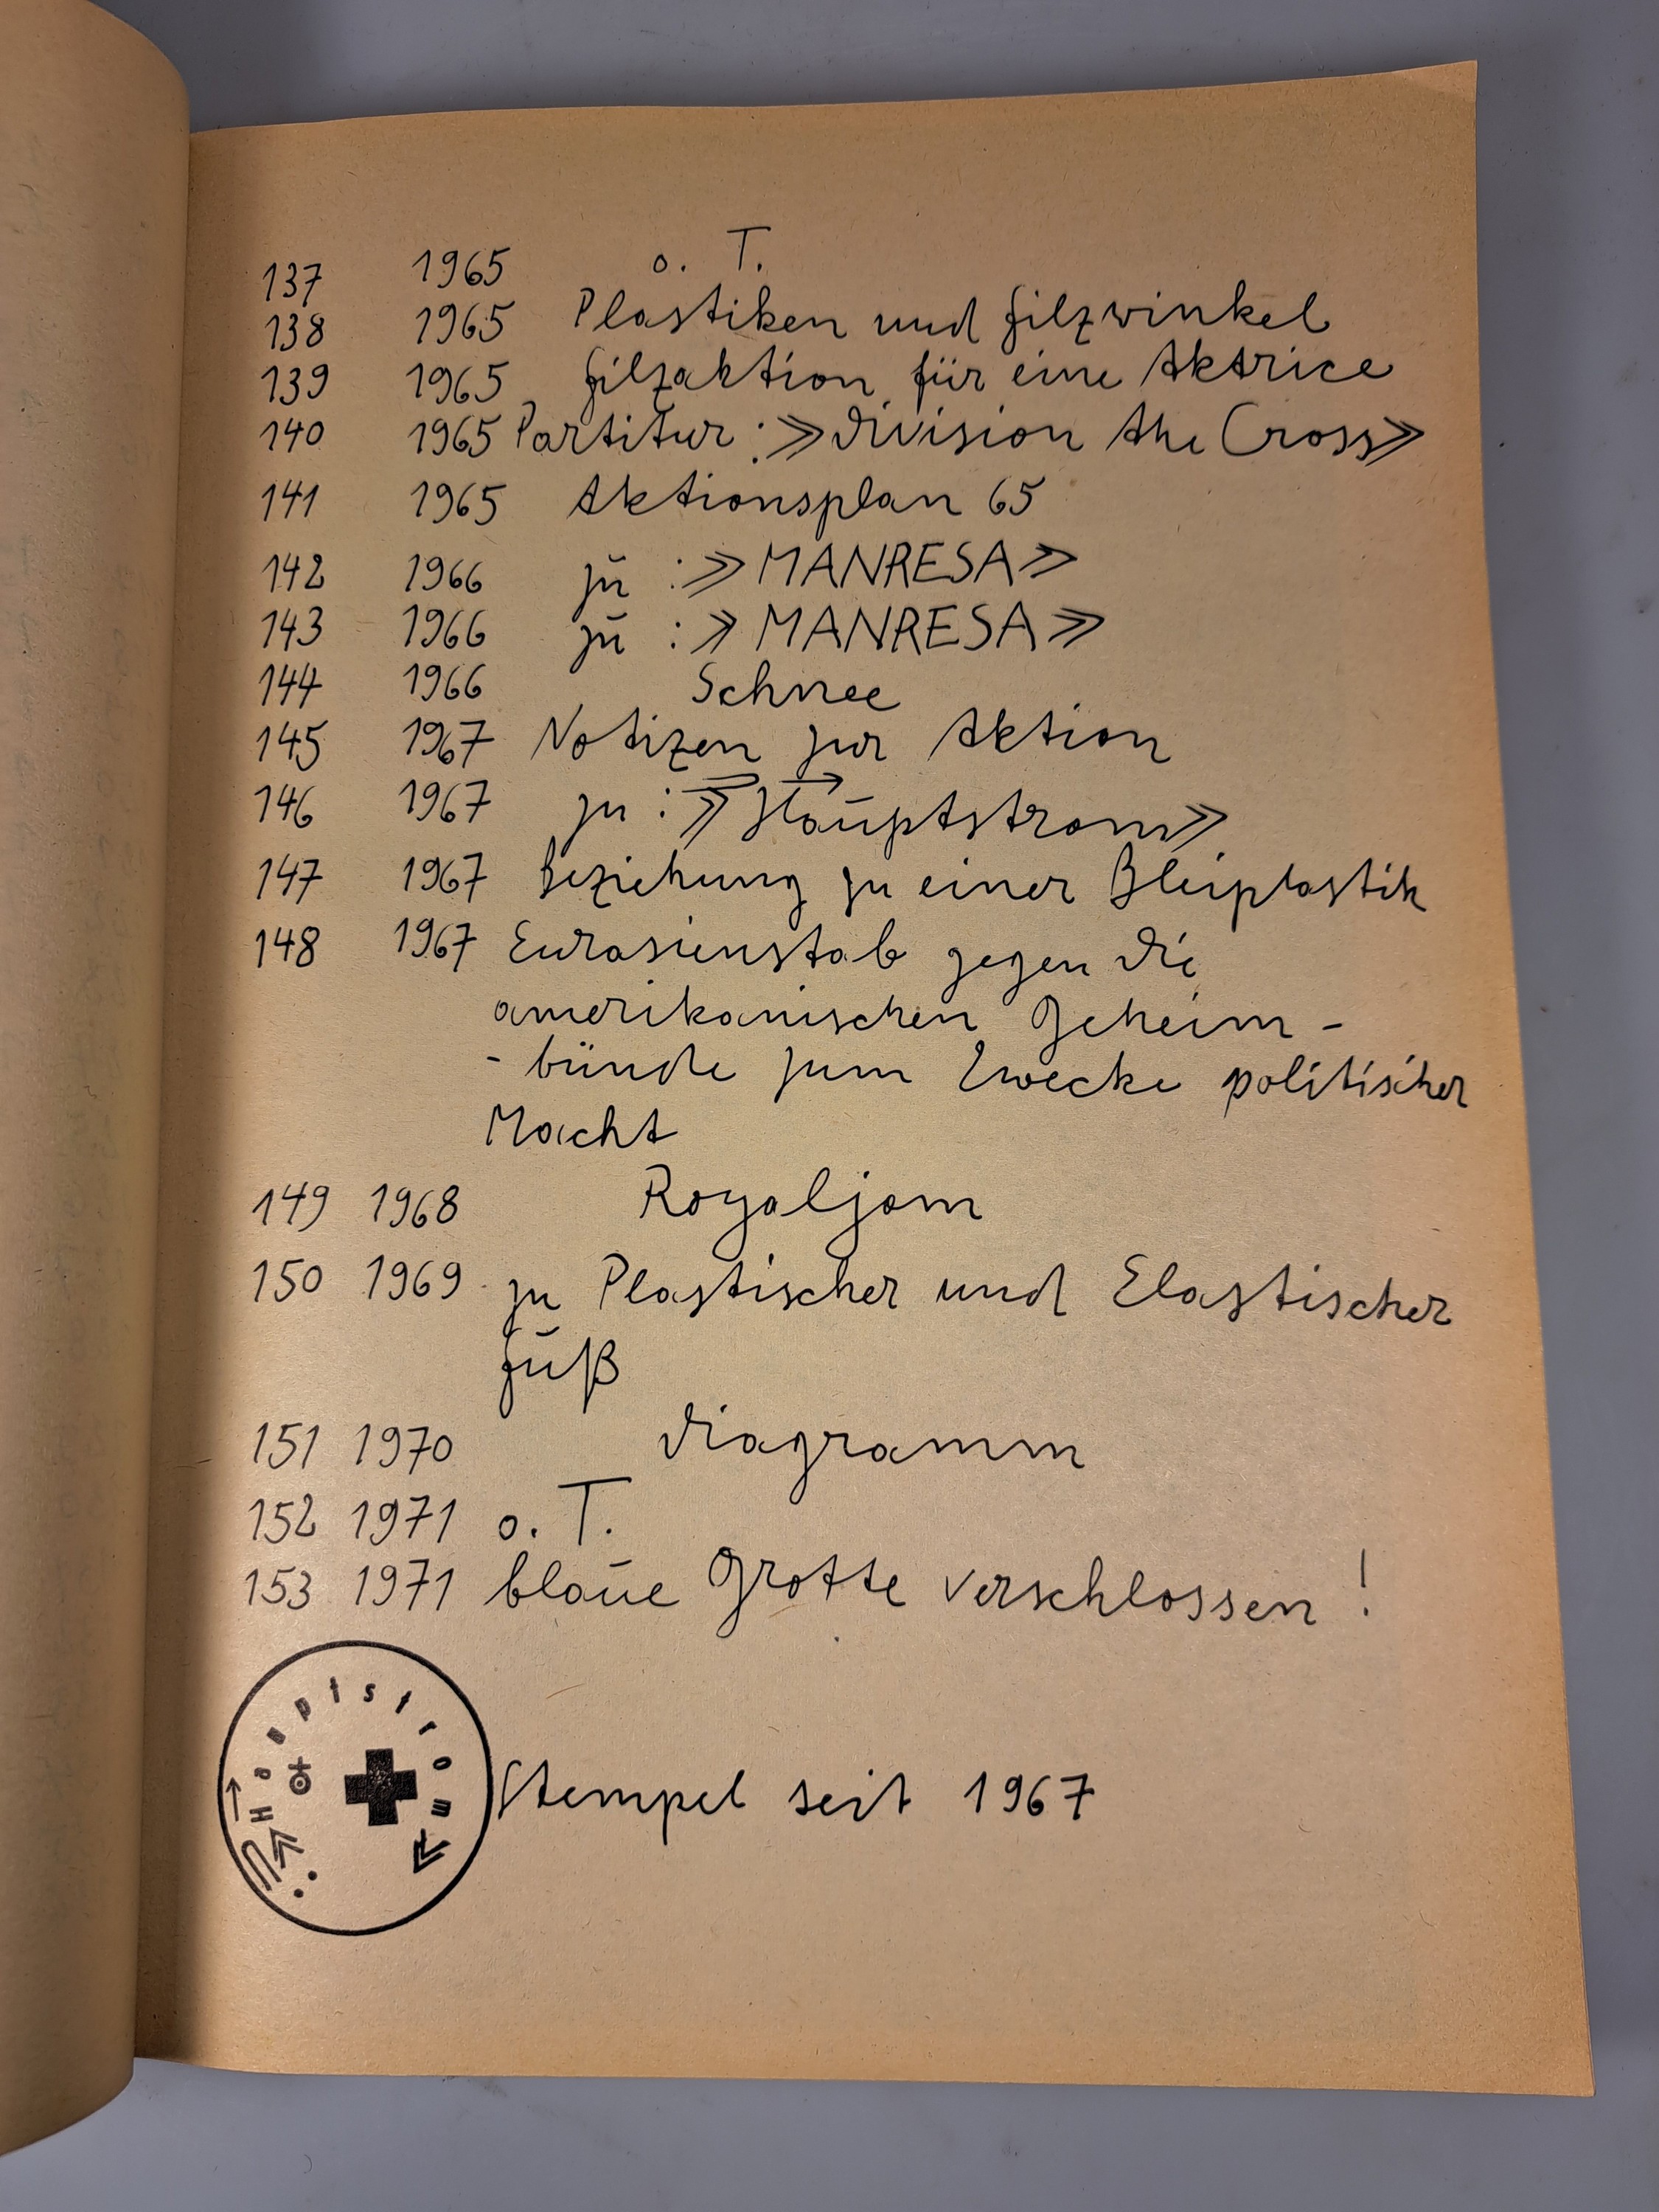 137 1965 o. T.
138 1965 Plastiken und Filzwinkel
139 1965 Filzaktion für eine Aktrice
140 1965 Partitur :≫division the Cross≫
141 1965 Aktionsplan 65
142 1966 zu :≫MANRESA≫
143 1966 zu :≫MANRESA≫
144 1966 Schnee
145 1967 Notizen zur Aktion
146 1967 zu :≫Hauptstrom≫
147 1967 Beziehung zu einer Bleiplastik
148 1967 Eurasienstab gegen die
amerikanischen Geheim-
-bünde zum Zwecke politischer
Macht
149 1968 Royaljam
150 1969 zu Plastischer und Elastischer
Fuß
151 1970 diagramm
152 1971 o. T.
153 1971 blaue Grotte verschlossen !
Hauptstrom
Stempel seit 1967